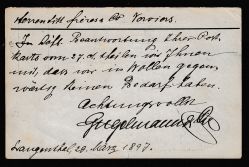 Herren Utz frères & Cie Verviers.
In höfl. Beantwortung Ihrer Post-
karte vom 27. d. theilen wir Ihnen
mit, dass wir in Wollen gegen-
wärtig keinen Bedarf haben.
Achtungsvollst
Gugelmann & Cie
Langenthal 28. März 1897.